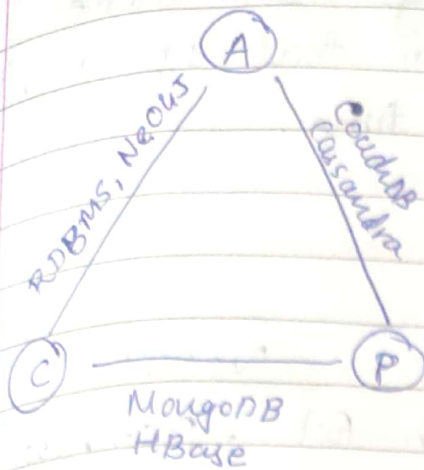 A
RDBMS, Neo4J
CouchDB
Cassandra
C
P
MongoDB
HBase